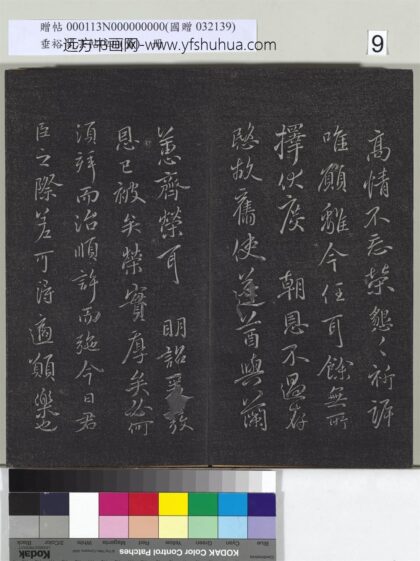 贈帖 000113N000000000(國贈 032139)
远方书画网-www.yfshuhua.com
9
高情不忘榮懇〻祈訴
唯願離今任耳餘無所
擇伏度 朝恩不遺存
愍故舊使蓬首與蘭
蕙齊榮耳 明詔 致
恩已被矣榮實厚矣 何
須拜而治順許而施今日君
臣之際差可得適願樂也
Blue
Cyan
Green
Yellow
Red
Magenta
White
3/Color
Black
KODAK Color Control Patches
Kodak